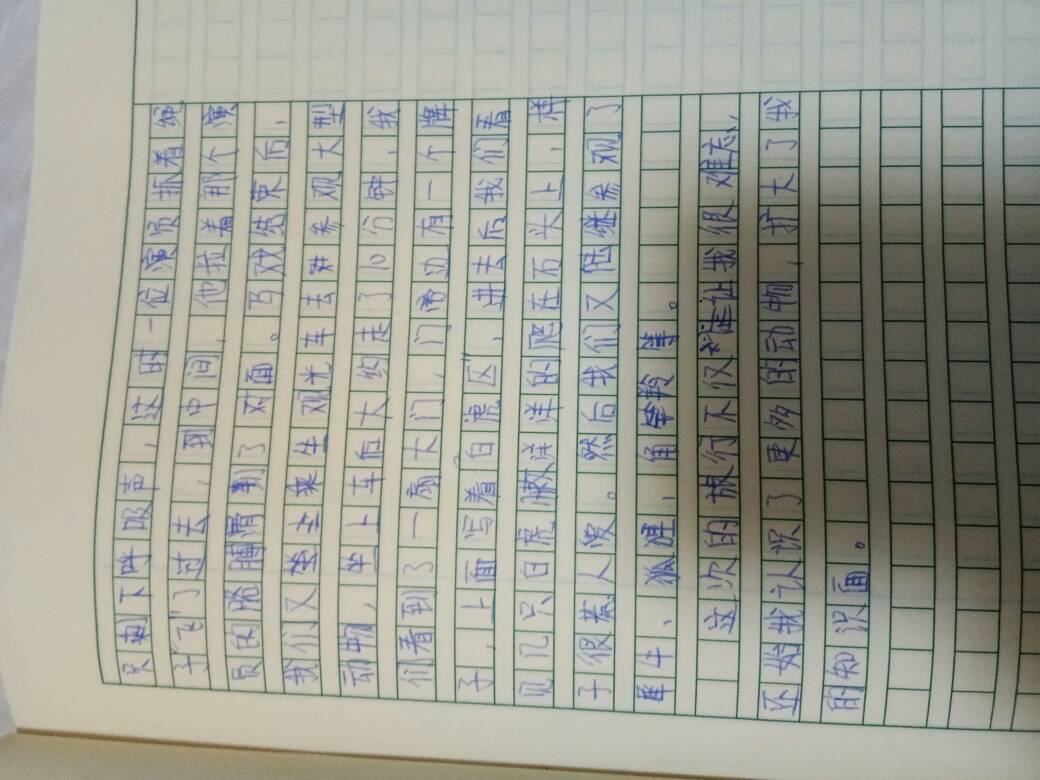 只剩下呼吸声，这时一位演员抓着绳
子"飞"了过去，到中间，他拉着那个演
员的胳膊到了对面。马戏结束后，
我们又坐上乘坐观光车去参观大型
动物，坐上车后大约走了10分钟，我
们看到了一扇大门，门旁边有一个牌
子，上面写着"白虎区"，进去后我们看
见几只白虎懒洋洋的爬在石头上，样
子很惹人爱。然后我们又陆继参观了
牛、狐狸、角羚等。
这次的旅行不仅让我很难忘，
还使我认识了更多的动物，扩大了我
的知识面。